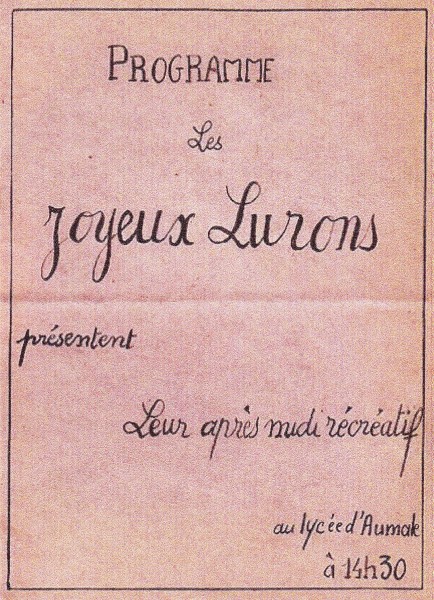 PROGRAMME
Les
Joyeux Lurons
présentent
Leur après midi récréatif
au lycée d'Aumale
à 14h30